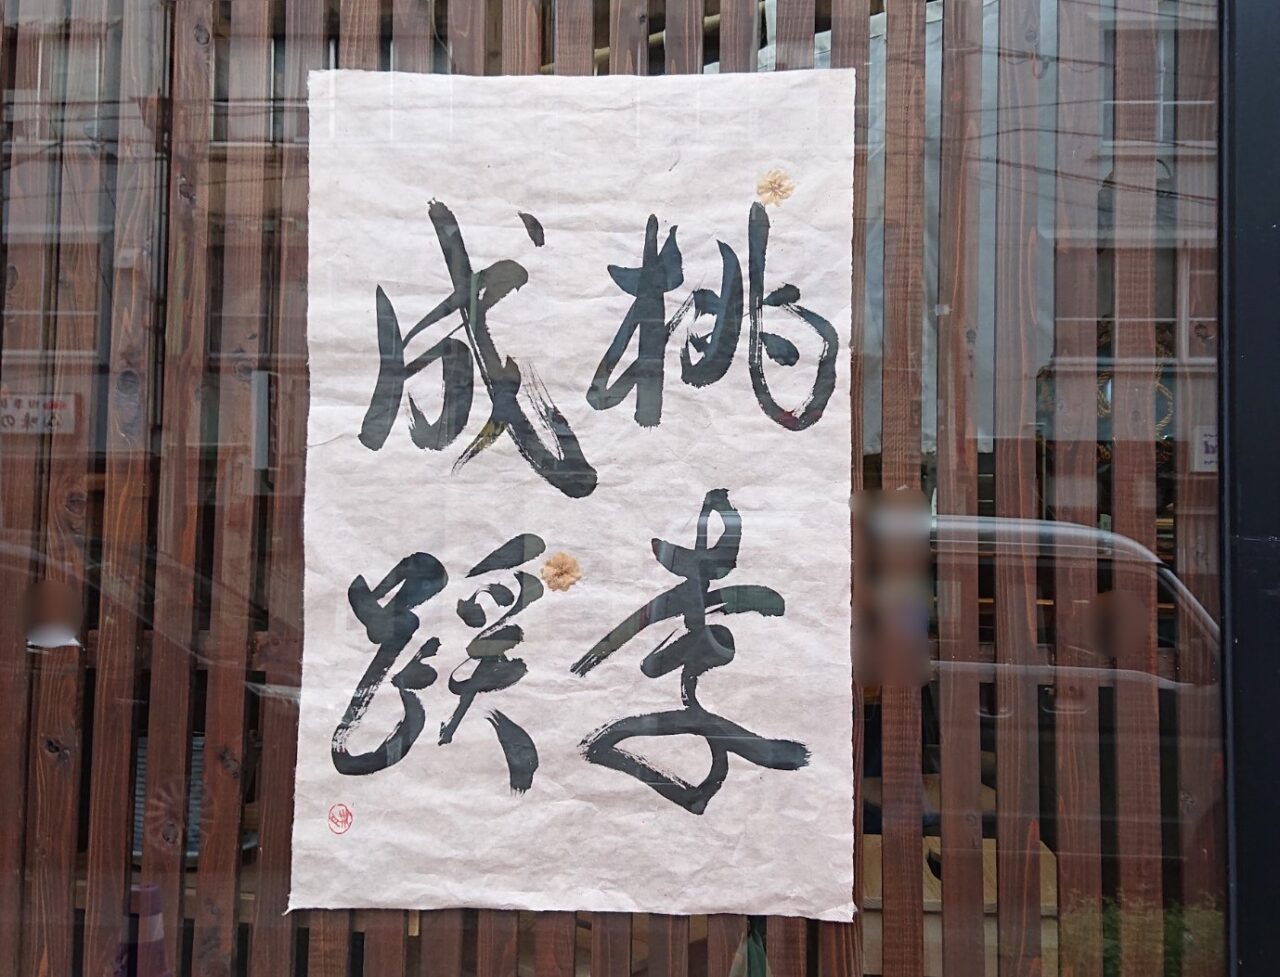 桃李
成蹊